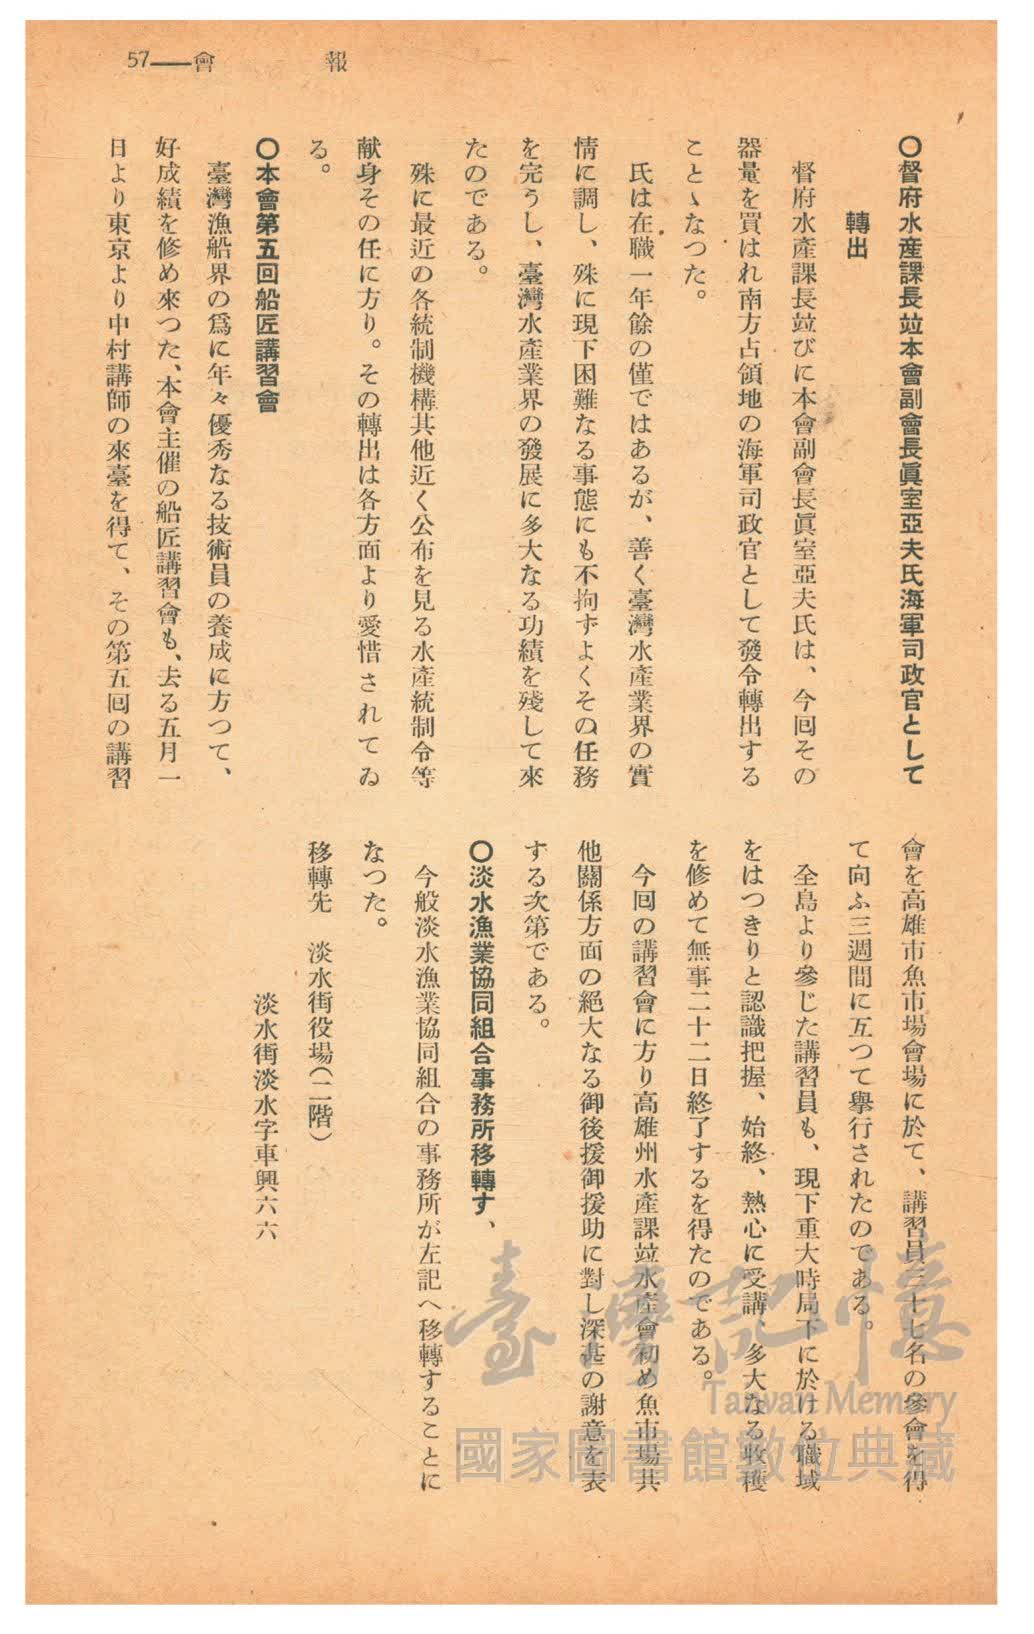 57――會報
〇督府水産課長竝本會副會長眞室亞夫氏海軍司政官として
轉出
督府水產課長竝びに本會副會長眞室亞夫氏は、今囘その
器量を買はれ南方占領地の海軍司政官として發令轉出する
ことゝなつた。
氏は在職一年餘の僅ではあるが、善く臺灣水產業界の實
情に調し、殊に現下困難なる事態にも不拘ずよくその任務
を完うし、臺灣水產業界の發展に多大なる功績を殘して來
たのである。
殊に最近の各統制機構其他近く公布を見る水產統制令等
献身その任に方り。その轉出は各方面より愛惜されてゐ
る。
〇本會第五回船匠講習會
臺灣漁船界の爲に年々優秀なる技術員の養成に方つて、
好成績を修め來つた、本會主催の船匠講習會も、去る五月一
日より東京より中村講師の來臺を得て、その第五囘の講習
會を高雄市魚市場會場に於て、講習員三十七名の參會を得
て向ふ三週間に互つて擧行されたのである。
全島より參じた講習員も、現下重大時局下に於ける職域
をはつきりと認識把握、始終、熱心に受講、多大なる收穫
を修めて無事二十二日終了するを得たのである。
今囘の講習會に方り高雄州水產課竝水產會初め魚市場其
他關係方面の絶大なる御後援御援助に對し深甚の謝意を表
する次第である。
〇淡水漁業協同組合事務所移轉す、
今般淡水漁業協同組合の事務所が左記へ移轉することに
なつた。
移轉先　淡水街役場(二階)
淡水街淡水字車興六六
臺灣記憶
Taiwan Memory
國家圖書館數位典藏